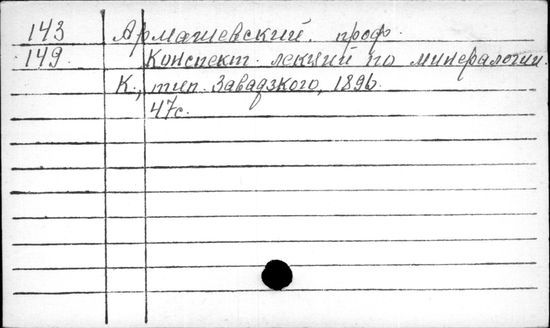 143 Армашевский. проф.
149 Конспект лекций по минералогии.
К., тип. Завадзкого, 1896.
47с.